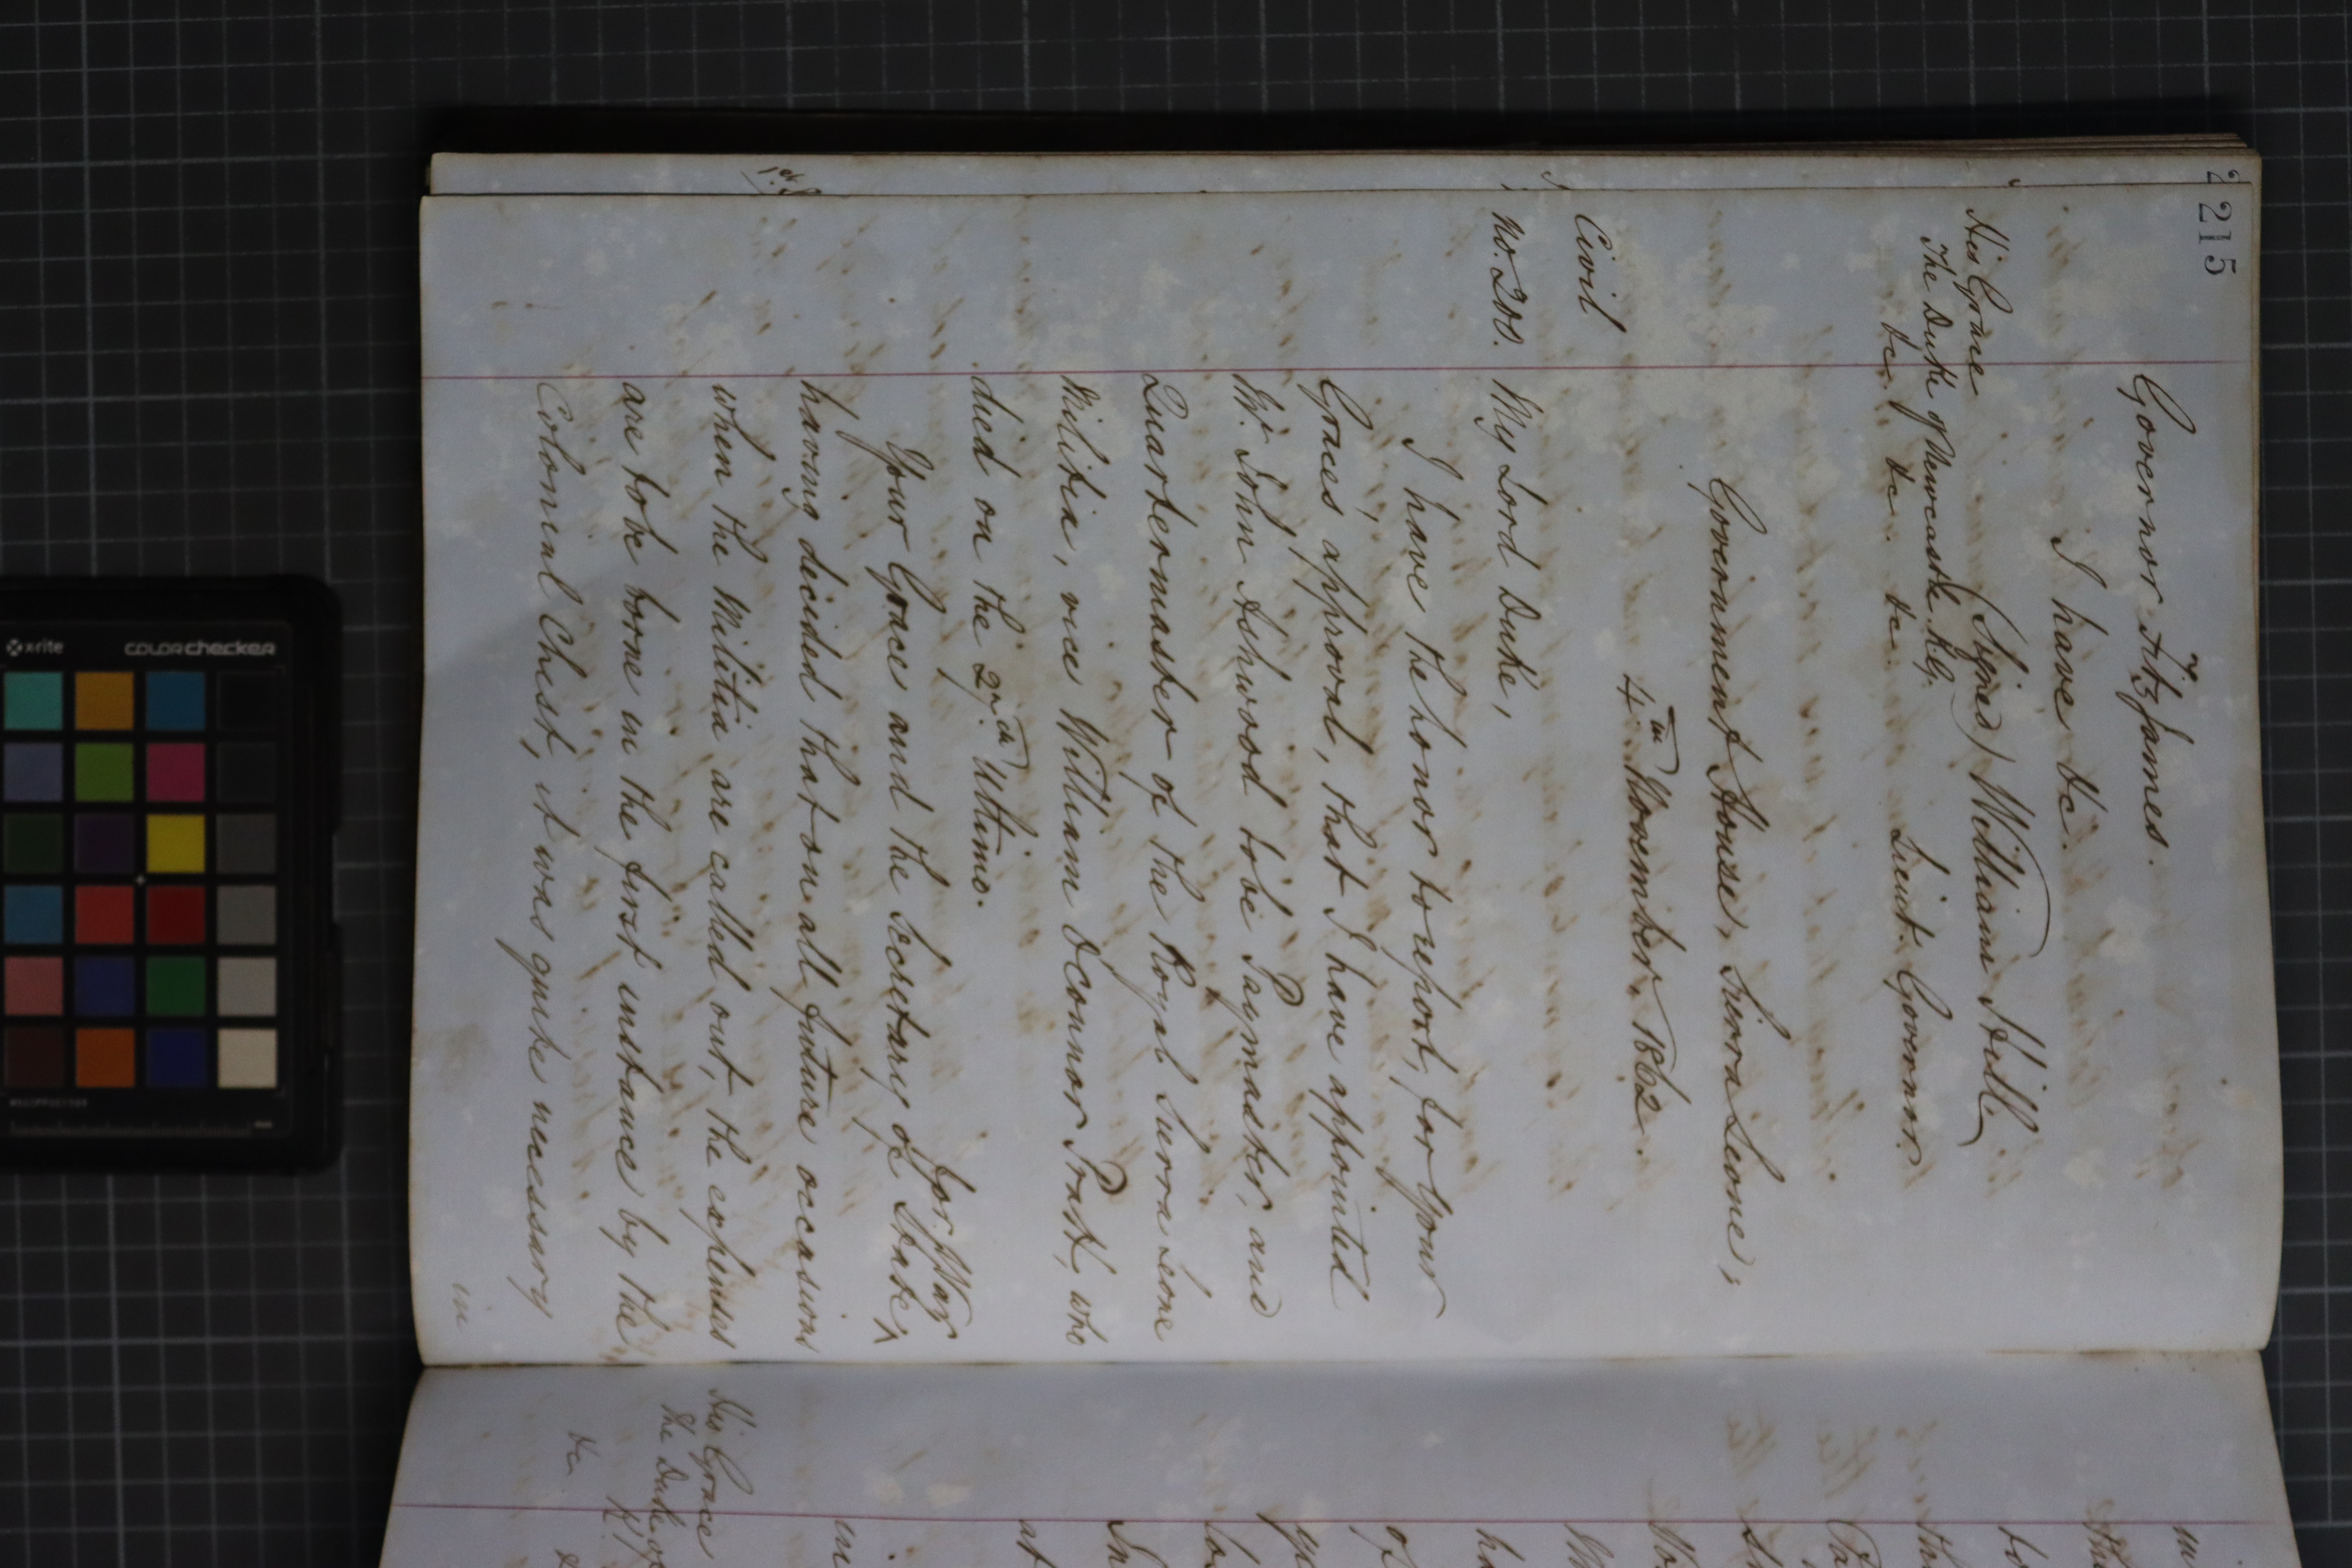 215
Governor Fitzjames.
I have &c.
(Signed) William Hill
His Grace
The Duke of Newcastle. K.G.
&c. &c. &c.
Lieut. Governor.
Government House, Sierra Leone,
4th November 1862.
Civil
No. 200.
My Lord Duke,
I have the honor to report, for Your
Graces approval, that I have appointed
Mr. John Ashwood to be Paymaster, and
Quartermaster of the Royal Sierra Leone
Militia, vice William O'Connor Pratt, who
died on the 27th Ultimo.
Your Grace and the Secretary of State ^ for War
having decided that on all future occasions
when the Militia are called out, the expenses
are to be borne in the first instance by the
Colonial Chest, it was quite necessary
in
His Grace
The Duke of
K.
&c